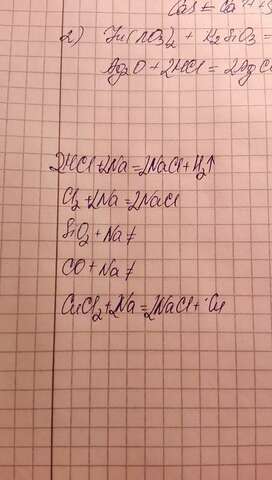 CaS = Ca
2) (NO3)2 + H2SiO3 =
Ag2O + 2HCl = 2AgCl
2HCl + 2Na = 2NaCl + H2↑
Cl2 + 2Na = 2NaCl
SiO2 + Na ≠
CO + Na ≠
CuCl2 + 2Na = 2NaCl + Cu